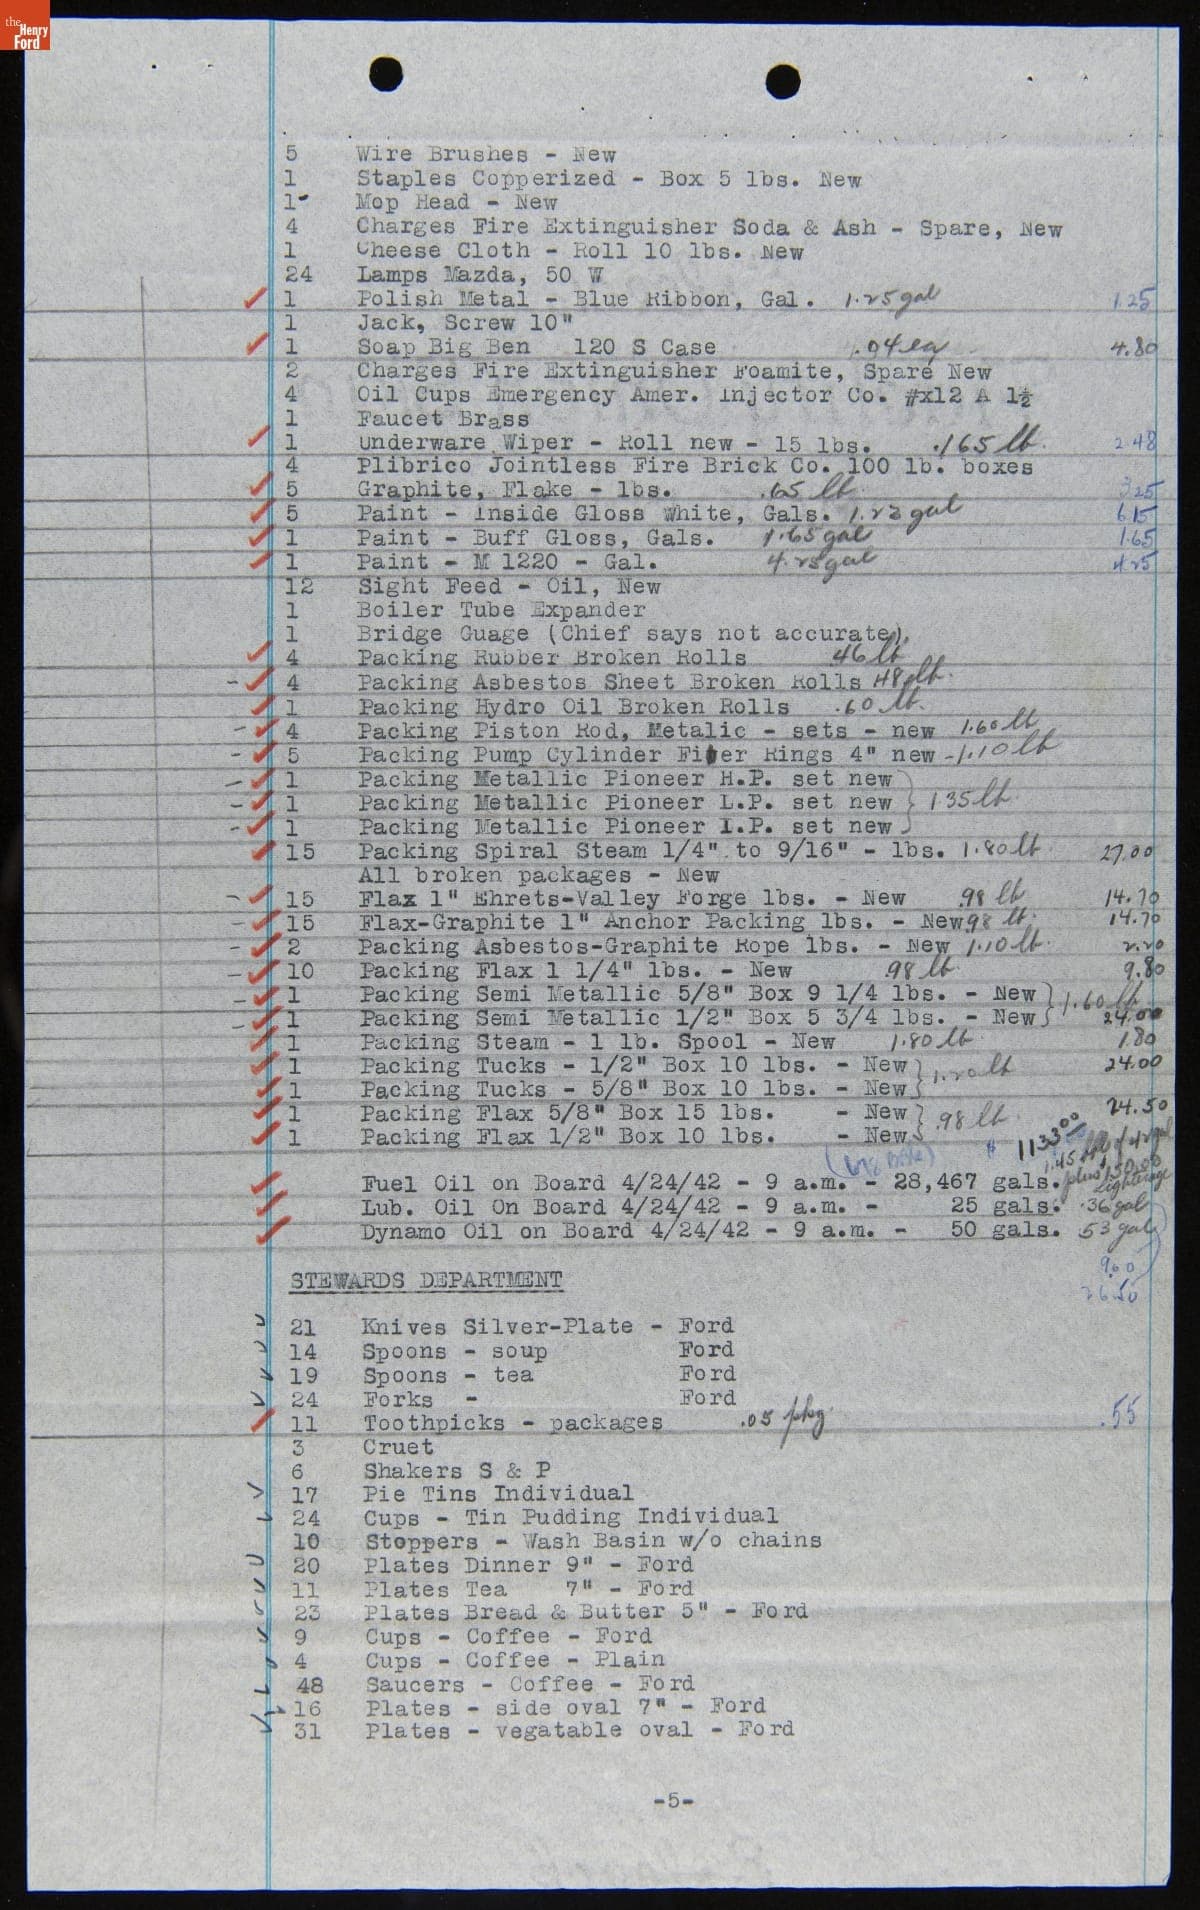 the
Henry
Ford
5 Wire Brushes - New
1 Staples Copperized - Box 5 lbs. New
1 Mop Head - New
4 Charges Fire Extinguisher Soda & Ash - Spare, New
1 Cheese Cloth - Roll 10 lbs. New
24 Lamps Mazda, 50 W
1 Polish Metal - Blue Ribbon, Gal. 1.25 gal 1.25
1 Jack, Screw 10"
1 Soap Big Ben 120 S Case .04 ea 4.80
2 Charges Fire Extinguisher Foamite, Spare New
4 Oil Cups Emergency Amer. Injector Co. #x12 A 1½
1 Faucet Brass
1 Underware Wiper - Roll new - 15 lbs. .165 lb. 2.48
4 Plibrico Jointless Fire Brick Co. 100 lb. boxes
5 Graphite, Flake - lbs. .65 lb. 3.25
5 Paint - Inside Gloss White, Gals. 1.23 gal 6.15
1 Paint - Buff Gloss, Gals. 1.65 gal 1.65
1 Paint - M 1220 - Gal. 4.25 gal 4.25
12 Sight Feed - Oil, New
1 Boiler Tube Expander
1 Bridge Guage (Chief says not accurate).
4 Packing Rubber Broken Rolls .46 lb
4 Packing Asbestos Sheet Broken Rolls .48 lb.
1 Packing Hydro Oil Broken Rolls .60 lb.
4 Packing Piston Rod, Metalic - sets - new 1.60 lb
5 Packing Pump Cylinder Fiber Rings 4" new - 1.10 lb
1 Packing Metallic Pioneer H.P. set new
1 Packing Metallic Pioneer L.P. set new } 1.35 lb.
1 Packing Metallic Pioneer I.P. set new
15 Packing Spiral Steam 1/4" to 9/16" - lbs. 1.80 lb. 27.00
All broken packages - New
15 Flax 1" Ehrets-Valley Forge lbs. - New .98 lb 14.70
15 Flax-Graphite 1" Anchor Packing lbs. - New .98 lb. 14.70
2 Packing Asbestos-Graphite Rope lbs. - New 1.10 lb. 2.20
10 Packing Flax 1 1/4" lbs. - New .98 lb. 9.80
1 Packing Semi Metallic 5/8" Box 9 1/4 lbs. - New } 1.60 lb
1 Packing Semi Metallic 1/2" Box 5 3/4 lbs. - New 24.00
1 Packing Steam - 1 lb. Spool - New 1.80 lb. 1.80
1 Packing Tucks - 1/2" Box 10 lbs. - New } 1.20 lb 24.00
1 Packing Tucks - 5/8" Box 10 lbs. - New
1 Packing Flax 5/8" Box 15 lbs. - New } .98 lb. 24.50
1 Packing Flax 1/2" Box 10 lbs. - New
(678 Bbls) $ 1133.00
Fuel Oil on Board 4/24/42 - 9 a.m. - 28,467 gals. 1.45 bbl of 42 gal plus 150.00 Lighterage
Lub. Oil On Board 4/24/42 - 9 a.m. - 25 gals. .36 gal
Dynamo Oil on Board 4/24/42 - 9 a.m. - 50 gals. 53 gal
9.00
26.50
STEWARDS DEPARTMENT
21 Knives Silver-Plate - Ford
14 Spoons - soup Ford
19 Spoons - tea Ford
24 Forks - Ford
11 Toothpicks - packages .05 pkg. .55
3 Cruet
6 Shakers S & P
17 Pie Tins Individual
24 Cups - Tin Pudding Individual
10 Stoppers - Wash Basin w/o chains
20 Plates Dinner 9" - Ford
11 Plates Tea 7" - Ford
23 Plates Bread & Butter 5" - Ford
9 Cups - Coffee - Ford
4 Cups - Coffee - Plain
48 Saucers - Coffee - Ford
16 Plates - side oval 7" - Ford
31 Plates - vegatable oval - Ford
-5-